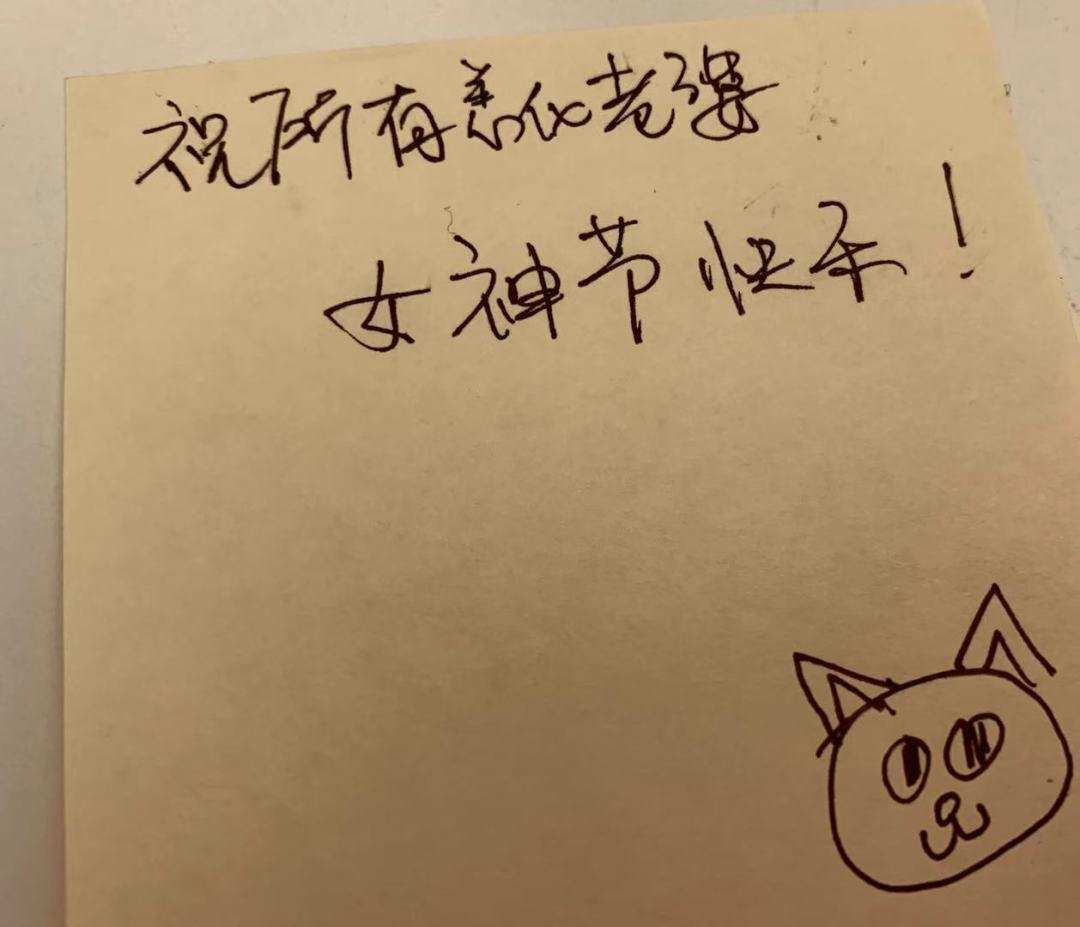 祝所有美化老婆
女神节快乐!